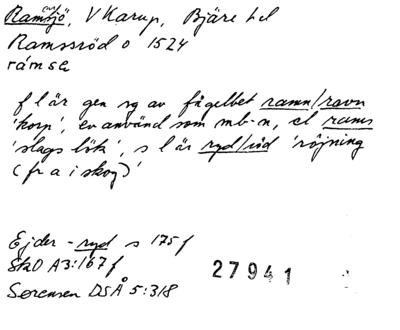 Ramsjö, V Karup, Bjäre hd
Ramssröd o 1524
rámsa
f l är gen sg av fågelbet ramn/ravn
'korp', ev använd som mb-n, el rams
'slags lök', s l är ryd/röd 'röjning
(fr a i skog)'
Ejder -ryd s 175 f
SkO A3:167 f
Sørensen DSÅ 5:318
27941